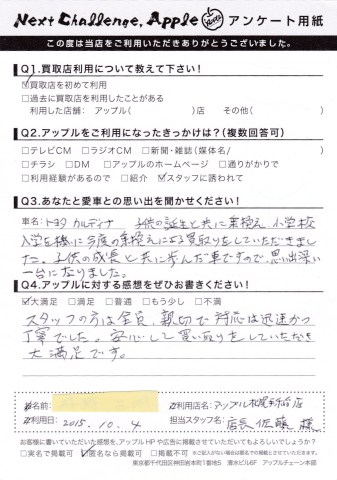 Next Challenge, Apple World アンケート用紙
この度は当店をご利用いただきありがとうございました。
Q1.買取店利用について教えて下さい！
☑買取店を初めて利用
□過去に買取店を利用したことがある
利用した店舗： アップル（ ）店 その他（ ）
Q2.アップルをご利用になったきっかけは？（複数回答可）
□テレビCM □ラジオCM □新聞・雑誌（媒体名/ ）
□チラシ □DM □アップルのホームページ □通りがかりで
□利用経験があるので □紹介 ☑スタッフに誘われて
Q3.あなたと愛車との思い出を聞かせください！
車名：トヨタ カルディナ 子供の誕生と共に乗換え 小学校
入学を機に今度の乗換えによる買取りをしていただきまし
た。子供の成長と共に歩んだ車ですので、思い出深い
一台になりました。
Q4.アップルに対する感想をぜひお書きください！
☑大満足 □満足 □普通 □もう少し □不満
スタッフの方は全員、親切で対応は迅速かつ
丁寧でした。安心して買い取りをしていただき
大満足です。
お名前：
ご利用店名：アップル
店
ご利用日：2015. 10. 4
担当スタッフ名：店長 佐藤 様
お客様に書いていただいた感想を、アップルHPや広告に掲載させていただいてもよろしいでしょうか？
□実名で掲載可 ☑匿名なら掲載可 □掲載不可 ※ご記入がない場合は匿名での掲載とさせていただきます。
東京都千代田区神田岩本町1番地5 清水ビル6F アップルチェーン本部